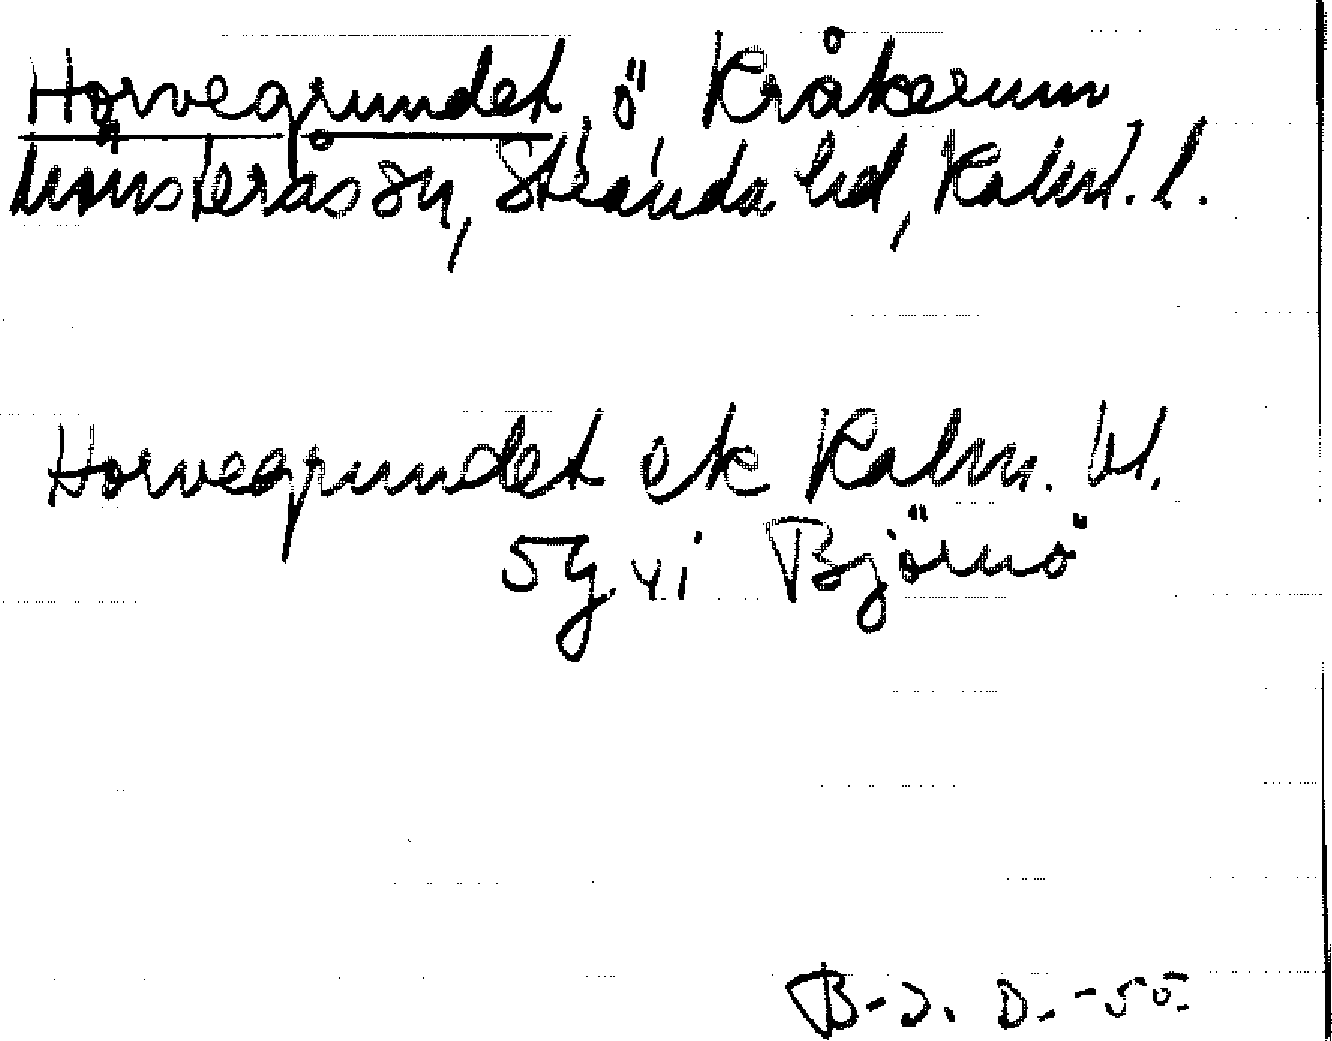 Horvegrundet, ö Kråkerum
Mönsterås sn, Stranda hd, Kalm. l.
Horvegrundet ek Kalm. bl.
5g yi Björnö
B-J. D. -55